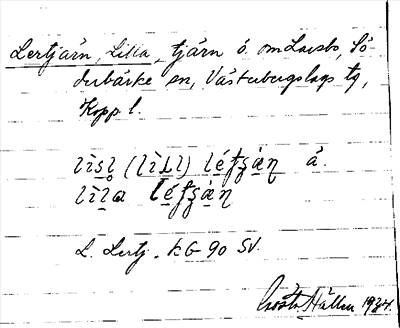 Lertjärn, Lilla, tjärn ö. om Laxsbo, Sö-
derbärke sn, Västerbergslags tg,
Kopp l.
lìsl̥ (lìłl) léfʂän å.
lìla léfʂän
L. Lertj. KG 90 SV.
Gösta Hållen 1934.